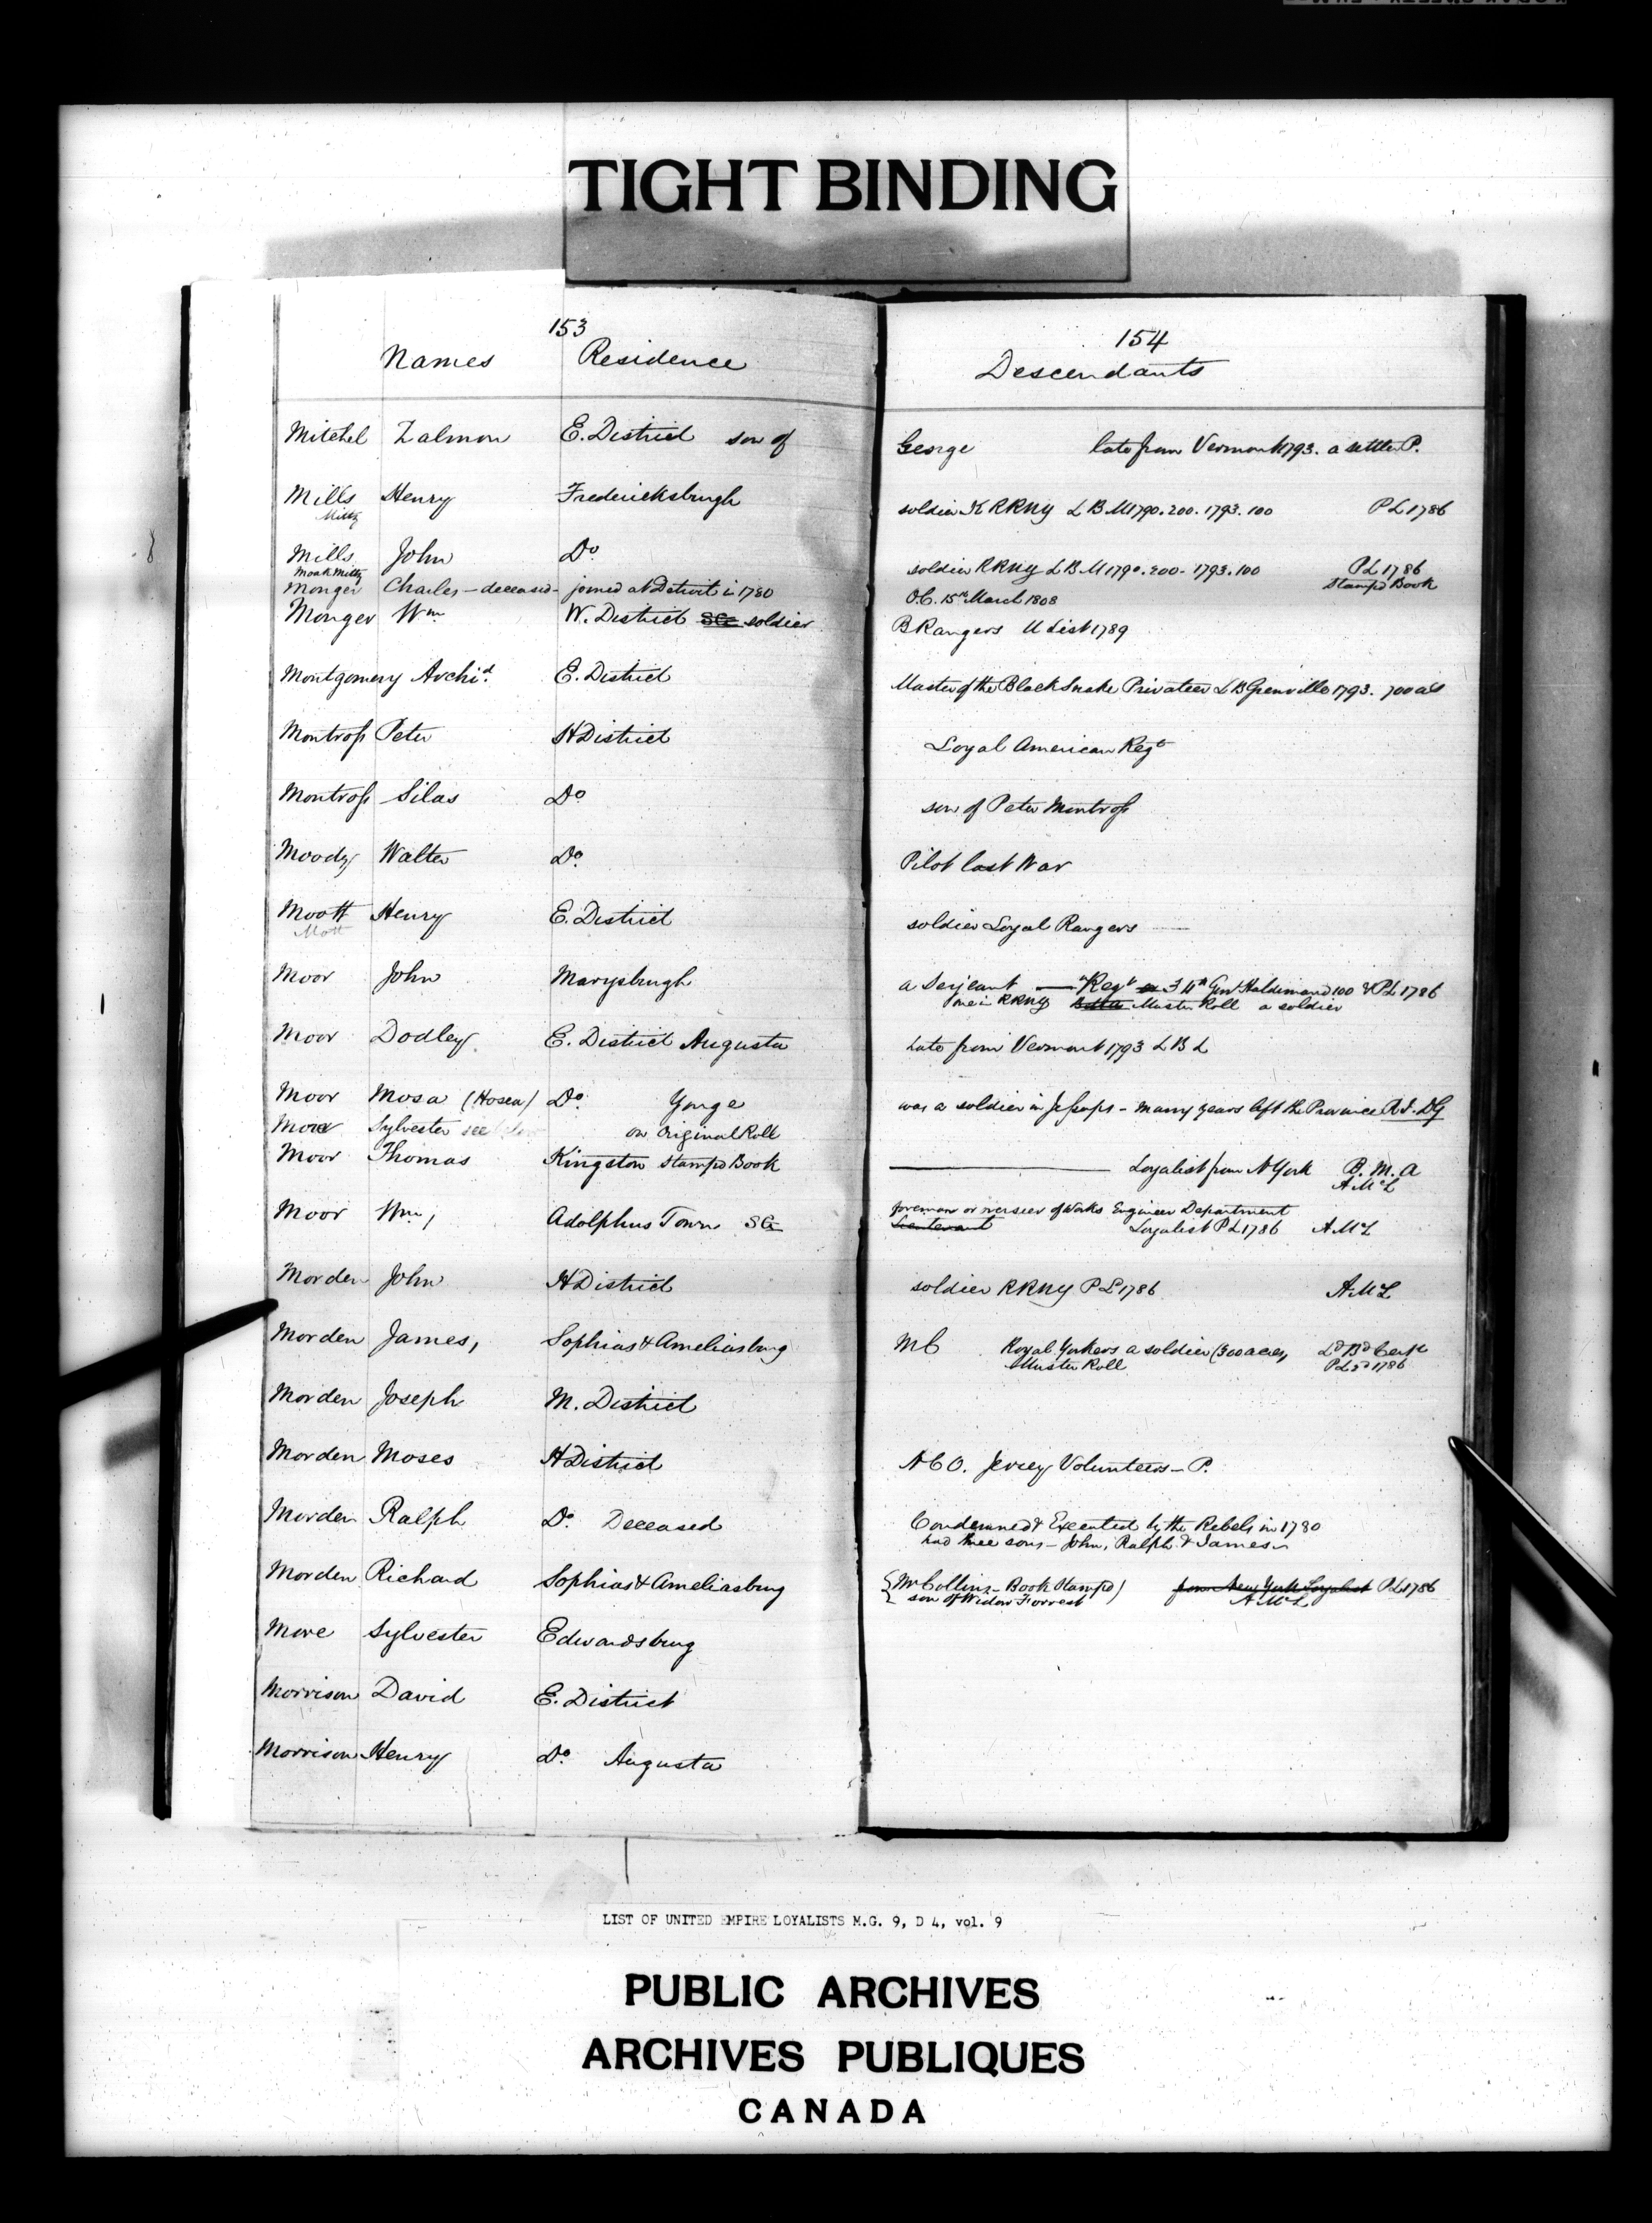 TIGHT BINDING
153
Names Residence
154
Descendants
Mitchel Zalmon E. District son of George late from Vermont 1793. a settler P.
Mills Henry Fredericksburgh soldier K RRNY L B M 1790. 200. 1793. 100 P L 1786
Mittz
Mills John Do. soldier RRNY L B M 1790. 200 - 1793. 100 P L 1786
Monk Mittz Stampd Book
Monger Charles - deceased - joined at Detroit in 1780 O.C. 15th March 1808
Monger Wm W. District SG soldier B Rangers U List 1789
Montgomery Archid. E. District Master of the Black Snake Privateer L B Grenville 1793. 700 a's
Montross Peter H District Loyal American Regt
Montross Silas Do son of Peter Montross
Moody Walter Do. Pilot last War
Moott Henry E. District soldier Loyal Rangers
Mott
Moor John Marysburgh a Serjeant Regt 34th Genl Haldimand 100 & P L 1786
one in RRNY Muster Roll a soldier
Moor Dodley E. District Augusta Late from Vermont 1793 L B L
Moor Mosa (Hosea) Do. Yonge was a soldier in Jessups - many years left the Province R.I. DG
More Sylvester see below on Original Roll
Moor Thomas Kingston Stampd Book Loyalist from N York B. M. A
A McL
Moor Wm, Adolphus Town SG foreman or overseer of Works Engineer Department
Lieutenant Loyalist P L 1786 A McL
Morden John H District soldier RRNY P L 1786 A McL
Morden James, Sophias & Ameliasburg MC Royal Yorkers a soldier (300 acres, Ld Bd Certe
Muster Roll P L 2d 1786
Morden Joseph M. District
Morden Moses H District N C O. Jersey Volunteers - P.
Morden Ralph Do. Deceased Condemned & Executed by the Rebels in 1780
had three sons - John, Ralph & James
Morden Richard Sophias & Ameliasburg Mr Collins - Book Stampd) from New York Loyalist P L 1786
son of Widow Forrest A McL
More Sylvester Edwardsburg
Morrison David E. District
Morrison Henry Do. Augusta
LIST OF UNITED EMPIRE LOYALISTS M.G. 9, D 4, vol. 9
PUBLIC ARCHIVES
ARCHIVES PUBLIQUES
CANADA